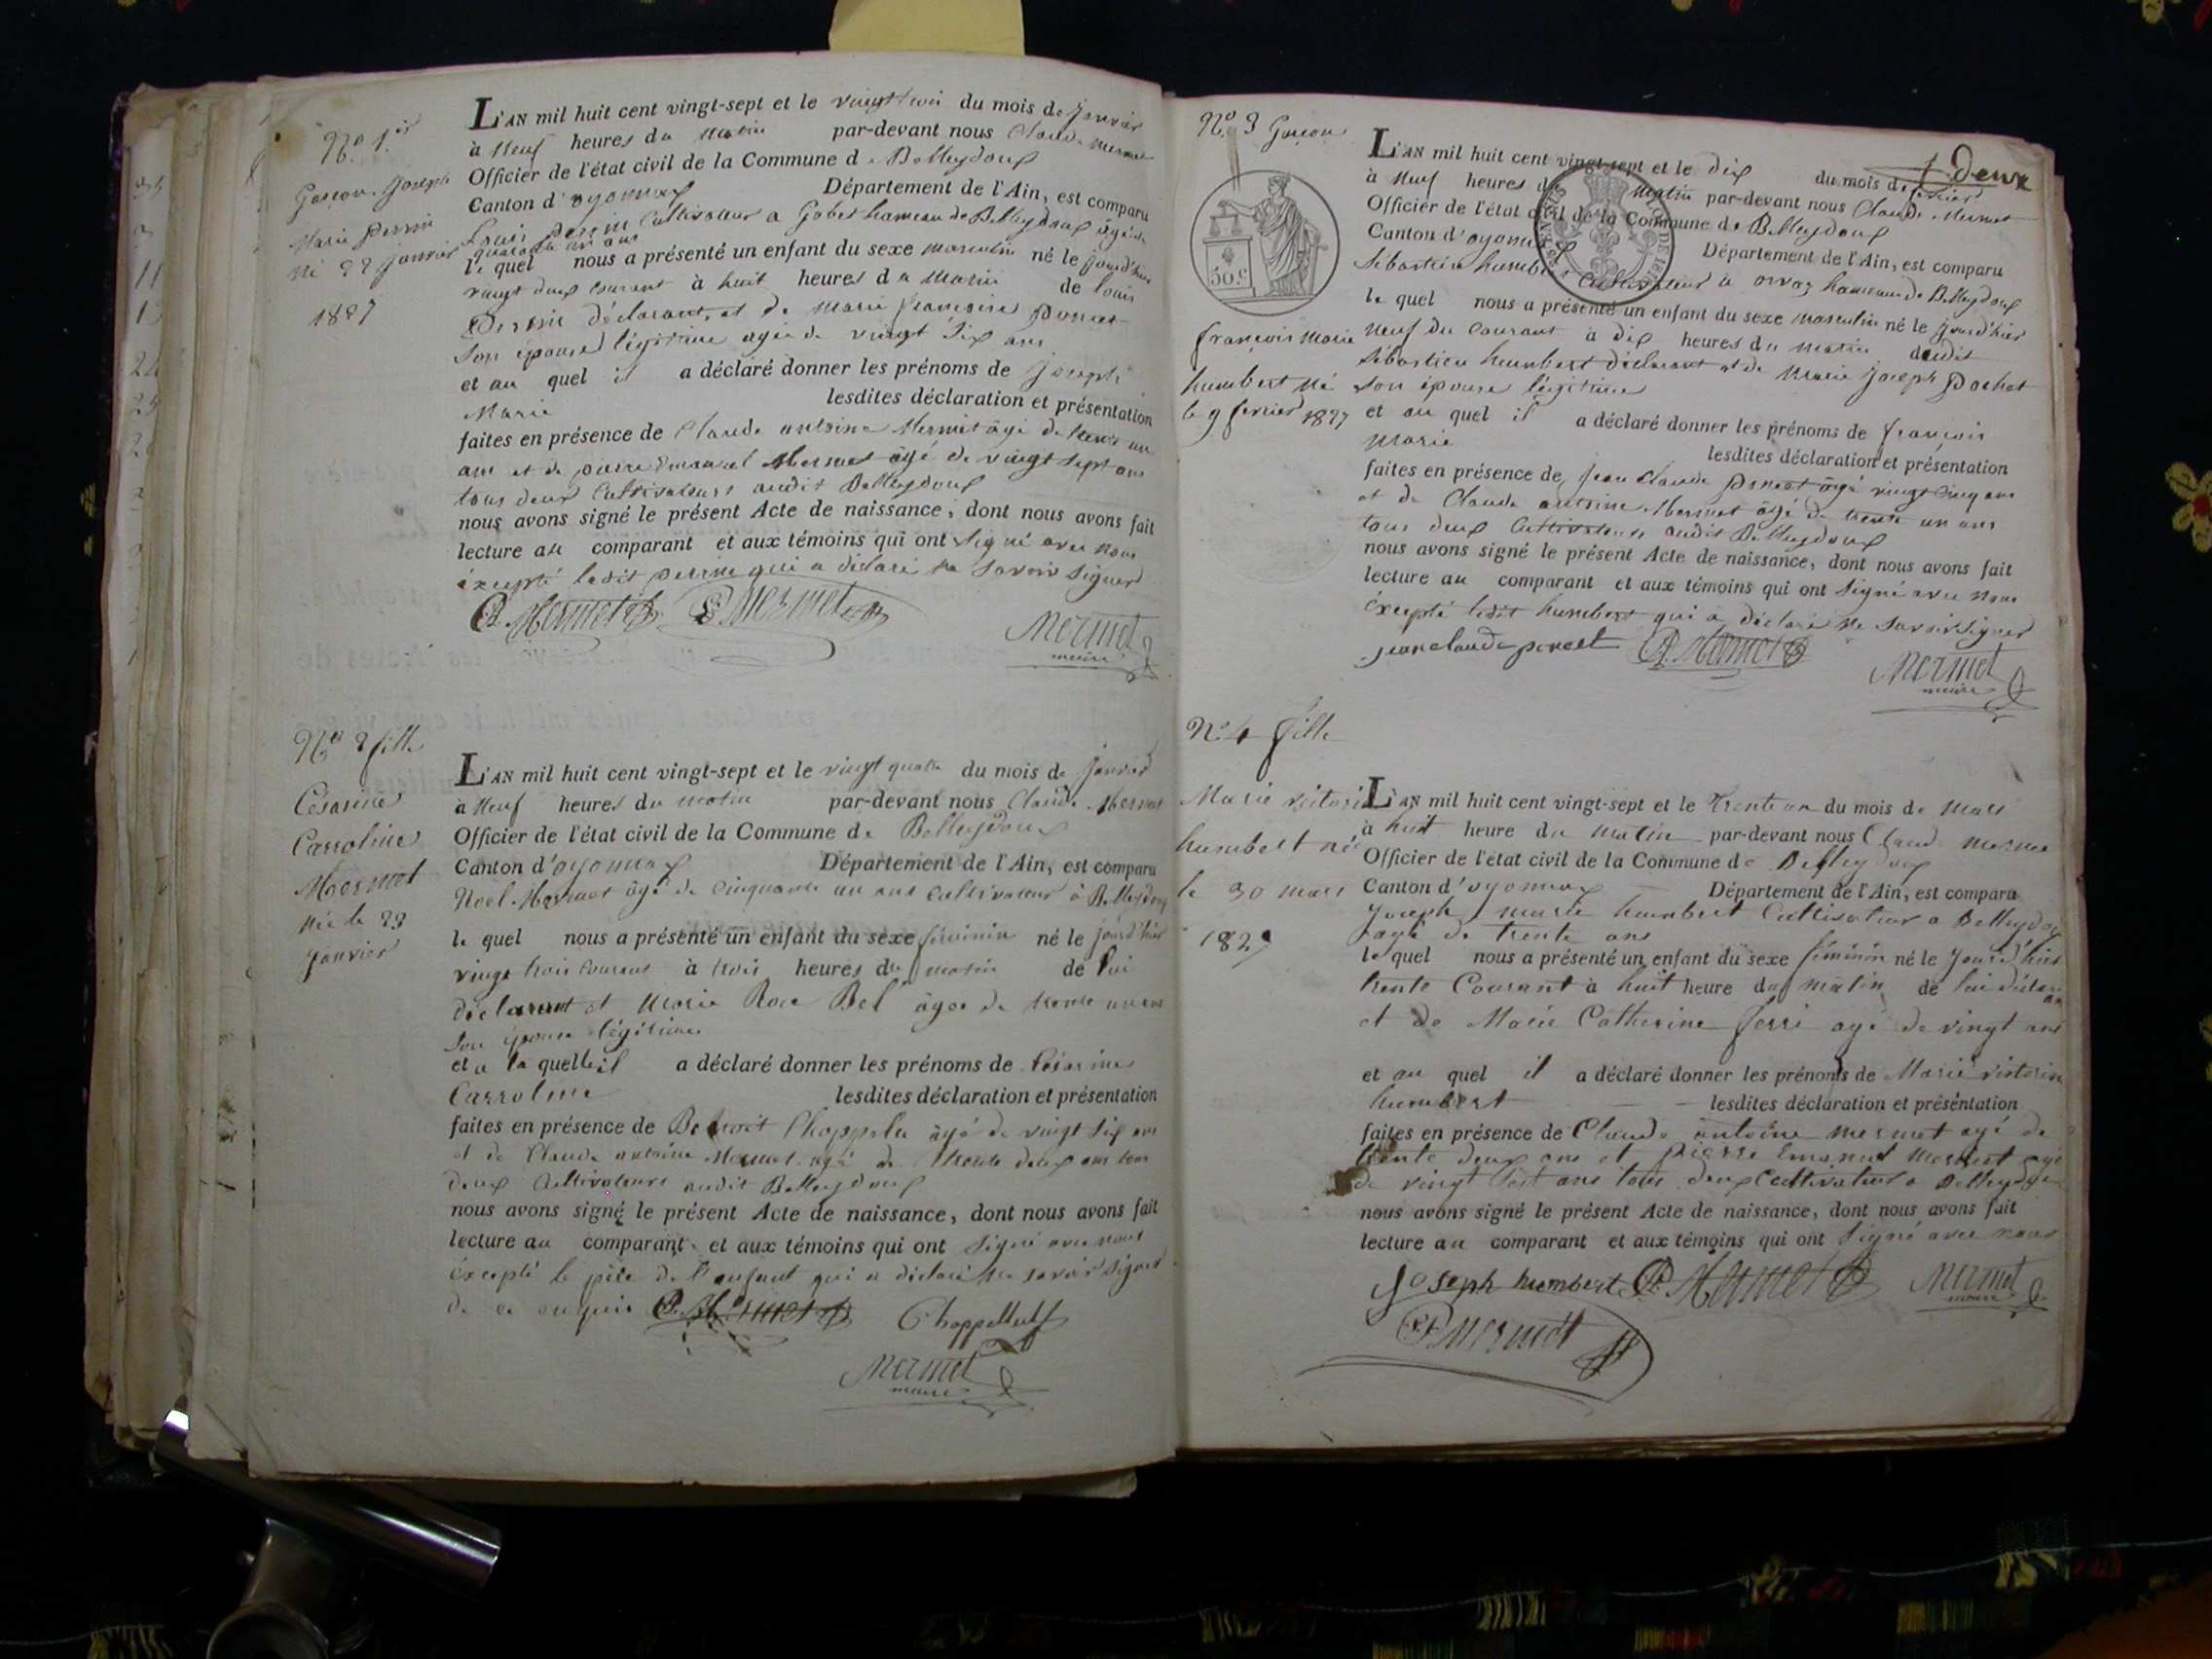 N.º 1.er
Garçon. Joseph
Marie Perrin
né 22 janvier
1827
L'AN mil huit cent vingt-sept et le vingt trois du mois de janvier
à neuf heures du matin par-devant nous Claude Mermet
Officier de l'état civil de la Commune de Belleydoux
Canton d'oyonnax Département de l'Ain, est comparu
Louis Perrin Cultivateur a Gobet hameau de Belleydoux âgé de
quarante un ans
le quel nous a présenté un enfant du sexe masculin né le jourd'hier
vingt deux courant à huit heures du matin de louis
Perrin déclarant, et de marie françoise poncet
son épouse légitime agée de vingt six ans
et au quel il a déclaré donner les prénoms de joseph
Marie lesdites déclaration et présentation
faites en présence de Claude antoine Mermet âgé de trente un
ans et de pierre Emanuel Mermet âgé de vingt sept ans
tous deux Cultivateurs audit Belleydoux
nous avons signé le présent Acte de naissance, dont nous avons fait
lecture au comparant et aux témoins qui ont signé avec nous
éxcepté ledit perrin qui a déclaré ne savoir signer
CA. Mermet PE. Mermet
Mermet
maire
Nº 2 fille
Césarine
Carroline
Mermet
née le 23
janvier
L'AN mil huit cent vingt-sept et le vingt quatre du mois de janvier
à neuf heures du matin par-devant nous Claude Mermet
Officier de l'état civil de la Commune de Belleydoux
Canton d'oyonnax Département de l'Ain, est comparu
Noel Mermet âgé de cinquante un ans cultivateur à Belleydoux
le quel nous a présenté un enfant du sexe féminin né le jourd'hier
vingt trois courant à trois heures du matin de lui
déclarant et marie Rose Bel âgée de trente un ans
son épouse légitime
et a la quelle il a déclaré donner les prénoms de Césarine
Carroline lesdites déclaration et présentation
faites en présence de Benoit Chappelu âgé de vingt six ans
et de Claude antoine Mermet agé de trente deux ans tous
deux Cultivateurs audit Belleydoux
nous avons signé le présent Acte de naissance, dont nous avons fait
lecture au comparant et aux témoins qui ont signé avec nous
éxcepté le père de l'enfant qui a déclaré ne savoir signer
de ce enquis CA. Mermet Chappellut
Mermet
maire
N.º 3 Garçon
50.c
françois marie
humbert né
le 9 fevrier 1827
deux
L'AN mil huit cent vingt-sept et le dix du mois de fevrier
à neuf heures du matin par-devant nous Claude Mermet
Officier de l'état civil de la Commune de Belleydoux
Canton d'oyonnax Département de l'Ain, est comparu
Sébastien humbert Cultivateur à orvaz hameau de Belleydoux
le quel nous a présenté un enfant du sexe masculin né le jourd'hier
neuf du courant à dix heures du matin dudit
Sébastien humbert déclarant et de marie joseph Pochet
son épouse légitime
et au quel il a déclaré donner les prénoms de françois
marie lesdites déclaration et présentation
faites en présence de jean claude poncet âgé vingt cinq ans
et de Claude antoine Mermet âgé de trente un ans
tous deux Cultivateurs audit Belleydoux
nous avons signé le présent Acte de naissance, dont nous avons fait
lecture au comparant et aux témoins qui ont signé avec nous
éxcepté ledit humbert qui a déclaré ne savoir signer
jean claude poncet CA. Mermet
Mermet
maire
N.º 4 fille
Marie victorine
humbert née
le 30 mars
1827
L'AN mil huit cent vingt-sept et le trente un du mois de mars
à huit heure du matin par-devant nous Claude mermet
Officier de l'état civil de la Commune de Belleydoux
Canton d'oyonnax Département de l'Ain, est comparu
Joseph marie humbert Cultivateur a Belleydoux
agé de trente ans
le quel nous a présenté un enfant du sexe féminin né le jourd'hier
trente Courant à huit heure du matin de lui déclarant
et de Marie Catherine ferri agé de vingt ans
et au quel il a déclaré donner les prénoms de Marie victorine
humbert lesdites déclaration et présentation
faites en présence de Claude antoine mermet agé de
trente deux ans et pierre Emanuel Mermet agé
de vingt sept ans tous deux Cultivateur a Belleydoux
nous avons signé le présent Acte de naissance, dont nous avons fait
lecture au comparant et aux témoins qui ont signé avec nous
Joseph humbert CA. Mermet Mermet
maire
PE Mermet